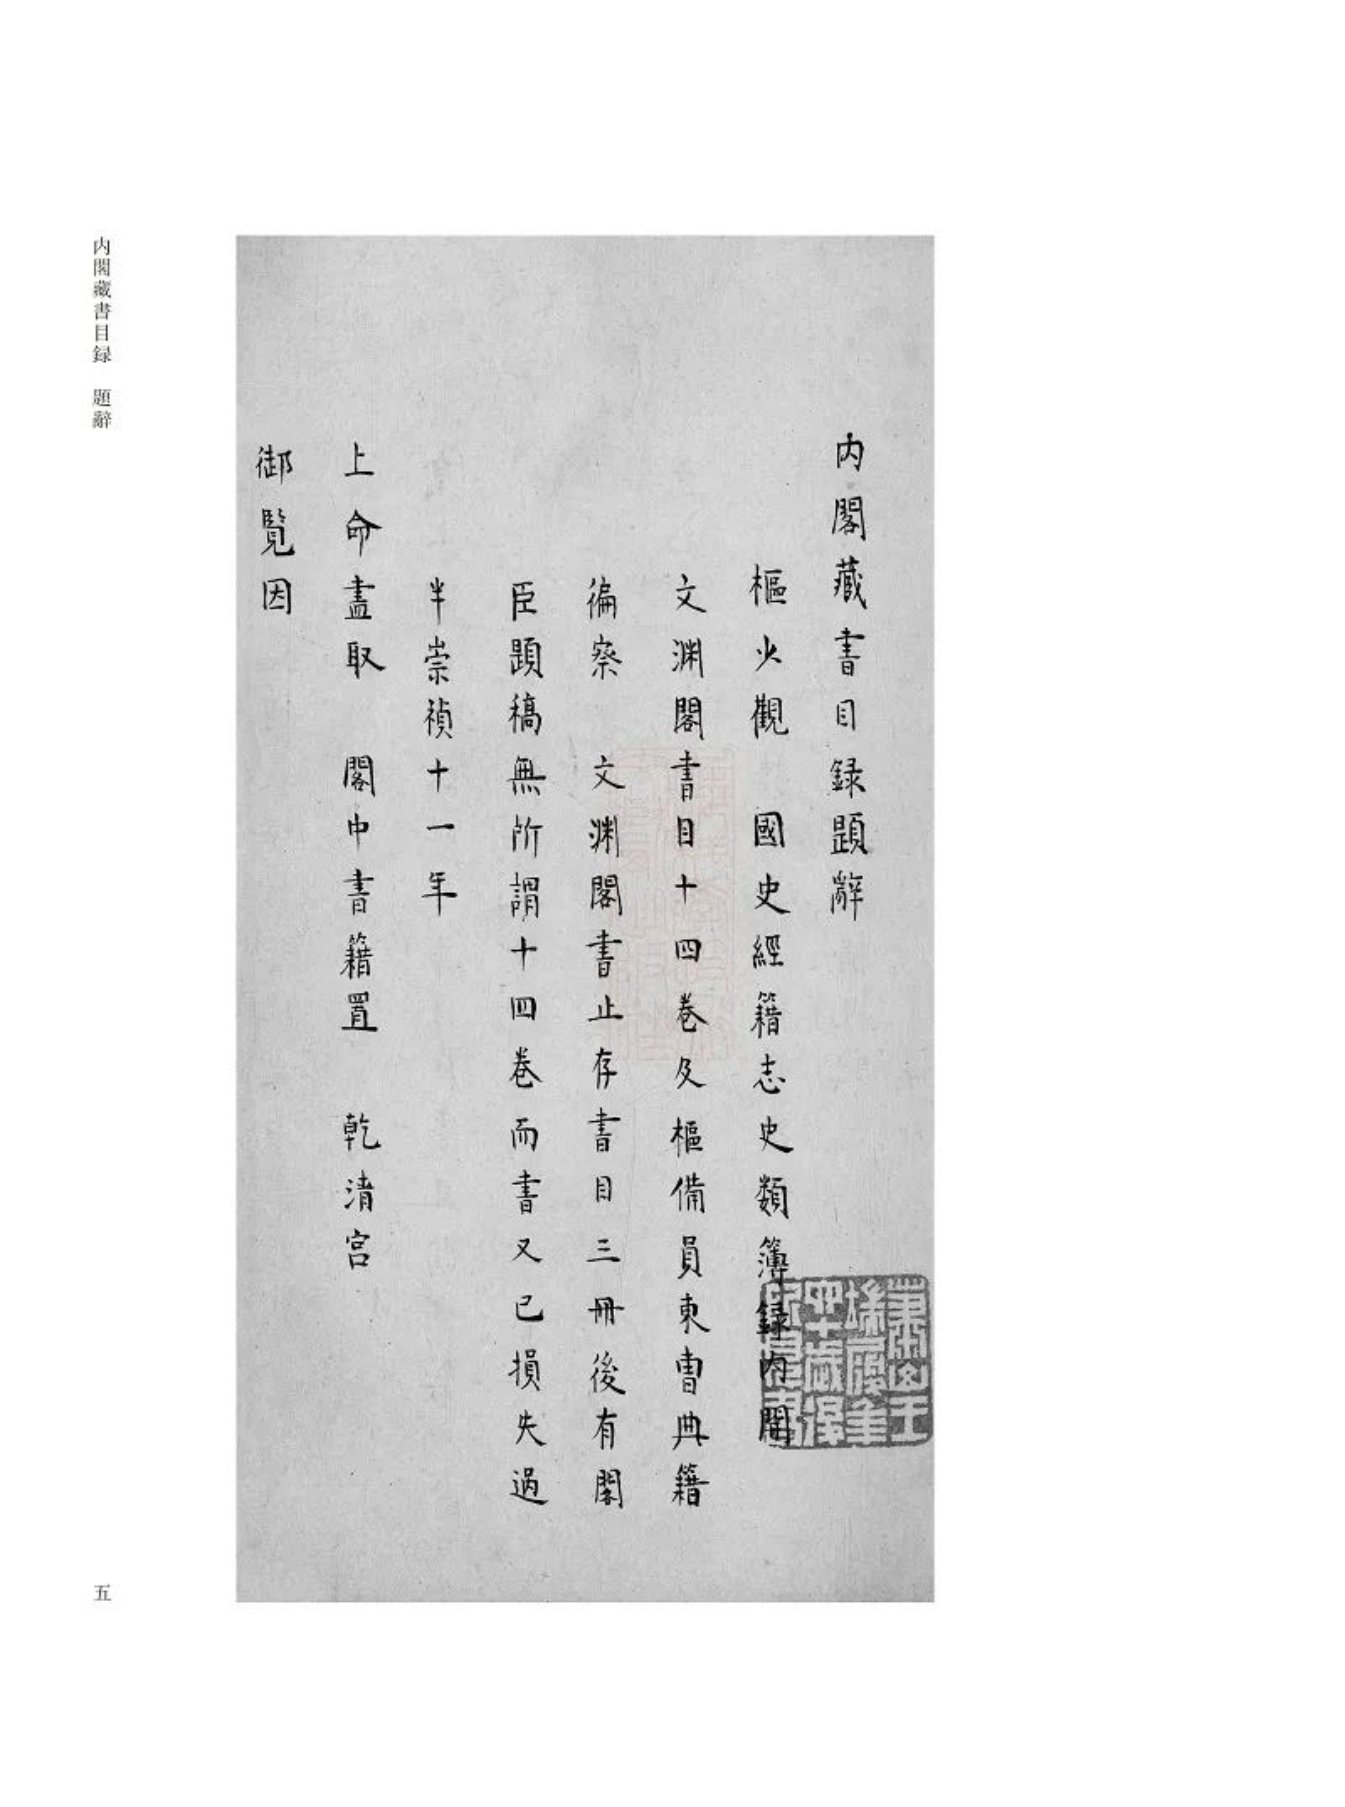 内閣藏書目録題辭
樞火觀　國史經籍志史類簿録内閣
文渊閣書目十四卷及樞備員東曹典籍
徧察　文渊閣書止存書目三冊後有閣
臣題稿無所謂十四卷而書又已損失過
半崇禎十一年
上命盡取　閣中書籍置　乾清宮
御覧因
内閣藏書目録　題辭
五